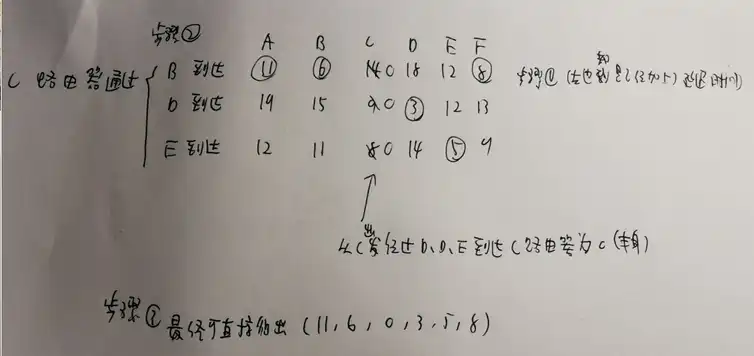 步骤②
A B C D E F
C 路由器通过 B 到达 11 6 0 18 12 8 步骤① (左边都是已经加上延迟时间)
D 到达 19 15 0 3 12 13
E 到达 12 11 0 14 5 9
从C出发经过B、D、E到达C路由器为0(本身)
步骤③ 最终可直接得出 (11, 6, 0, 3, 5, 8)